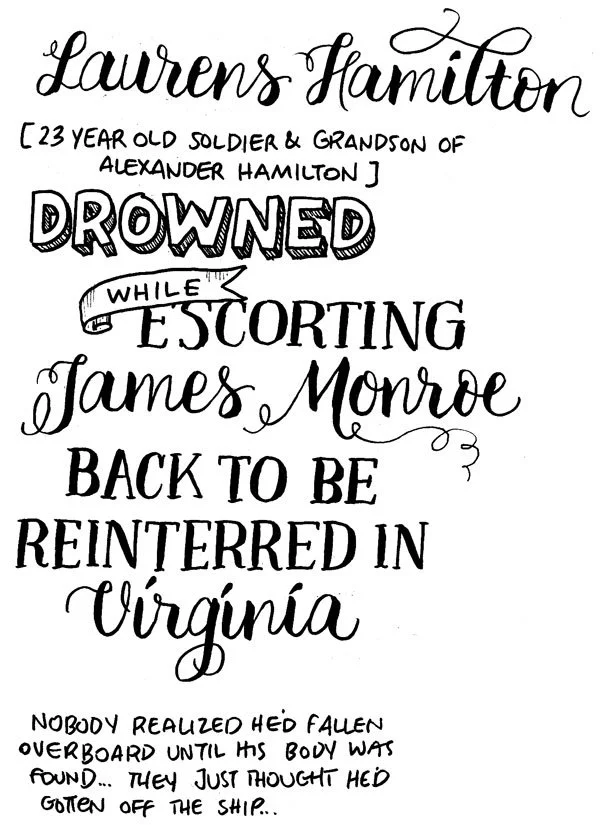 Laurens Hamilton
[23 YEAR OLD SOLDIER & GRANDSON OF
ALEXANDER HAMILTON]
DROWNED
WHILE
ESCORTING
James Monroe
BACK TO BE
REINTERRED IN
Virginia
NOBODY REALIZED HE'D FALLEN
OVERBOARD UNTIL HIS BODY WAS
FOUND... THEY JUST THOUGHT HE'D
GOTTEN OFF THE SHIP...